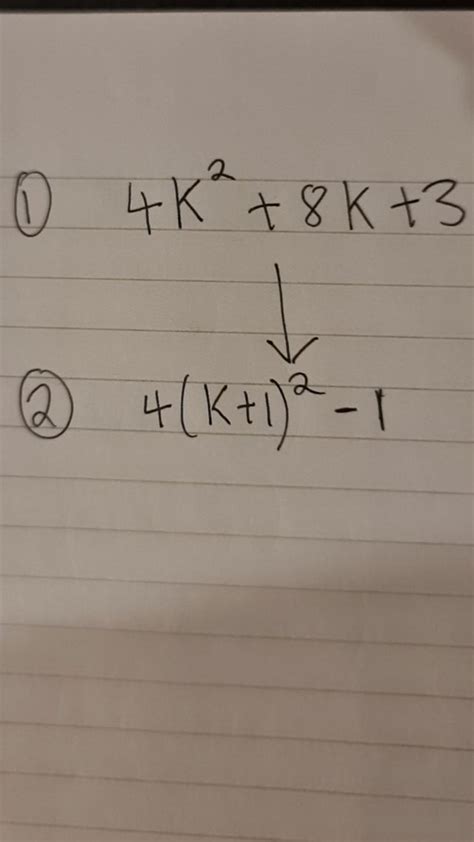 ① 4K² + 8K + 3
↓
② 4(K+1)² - 1